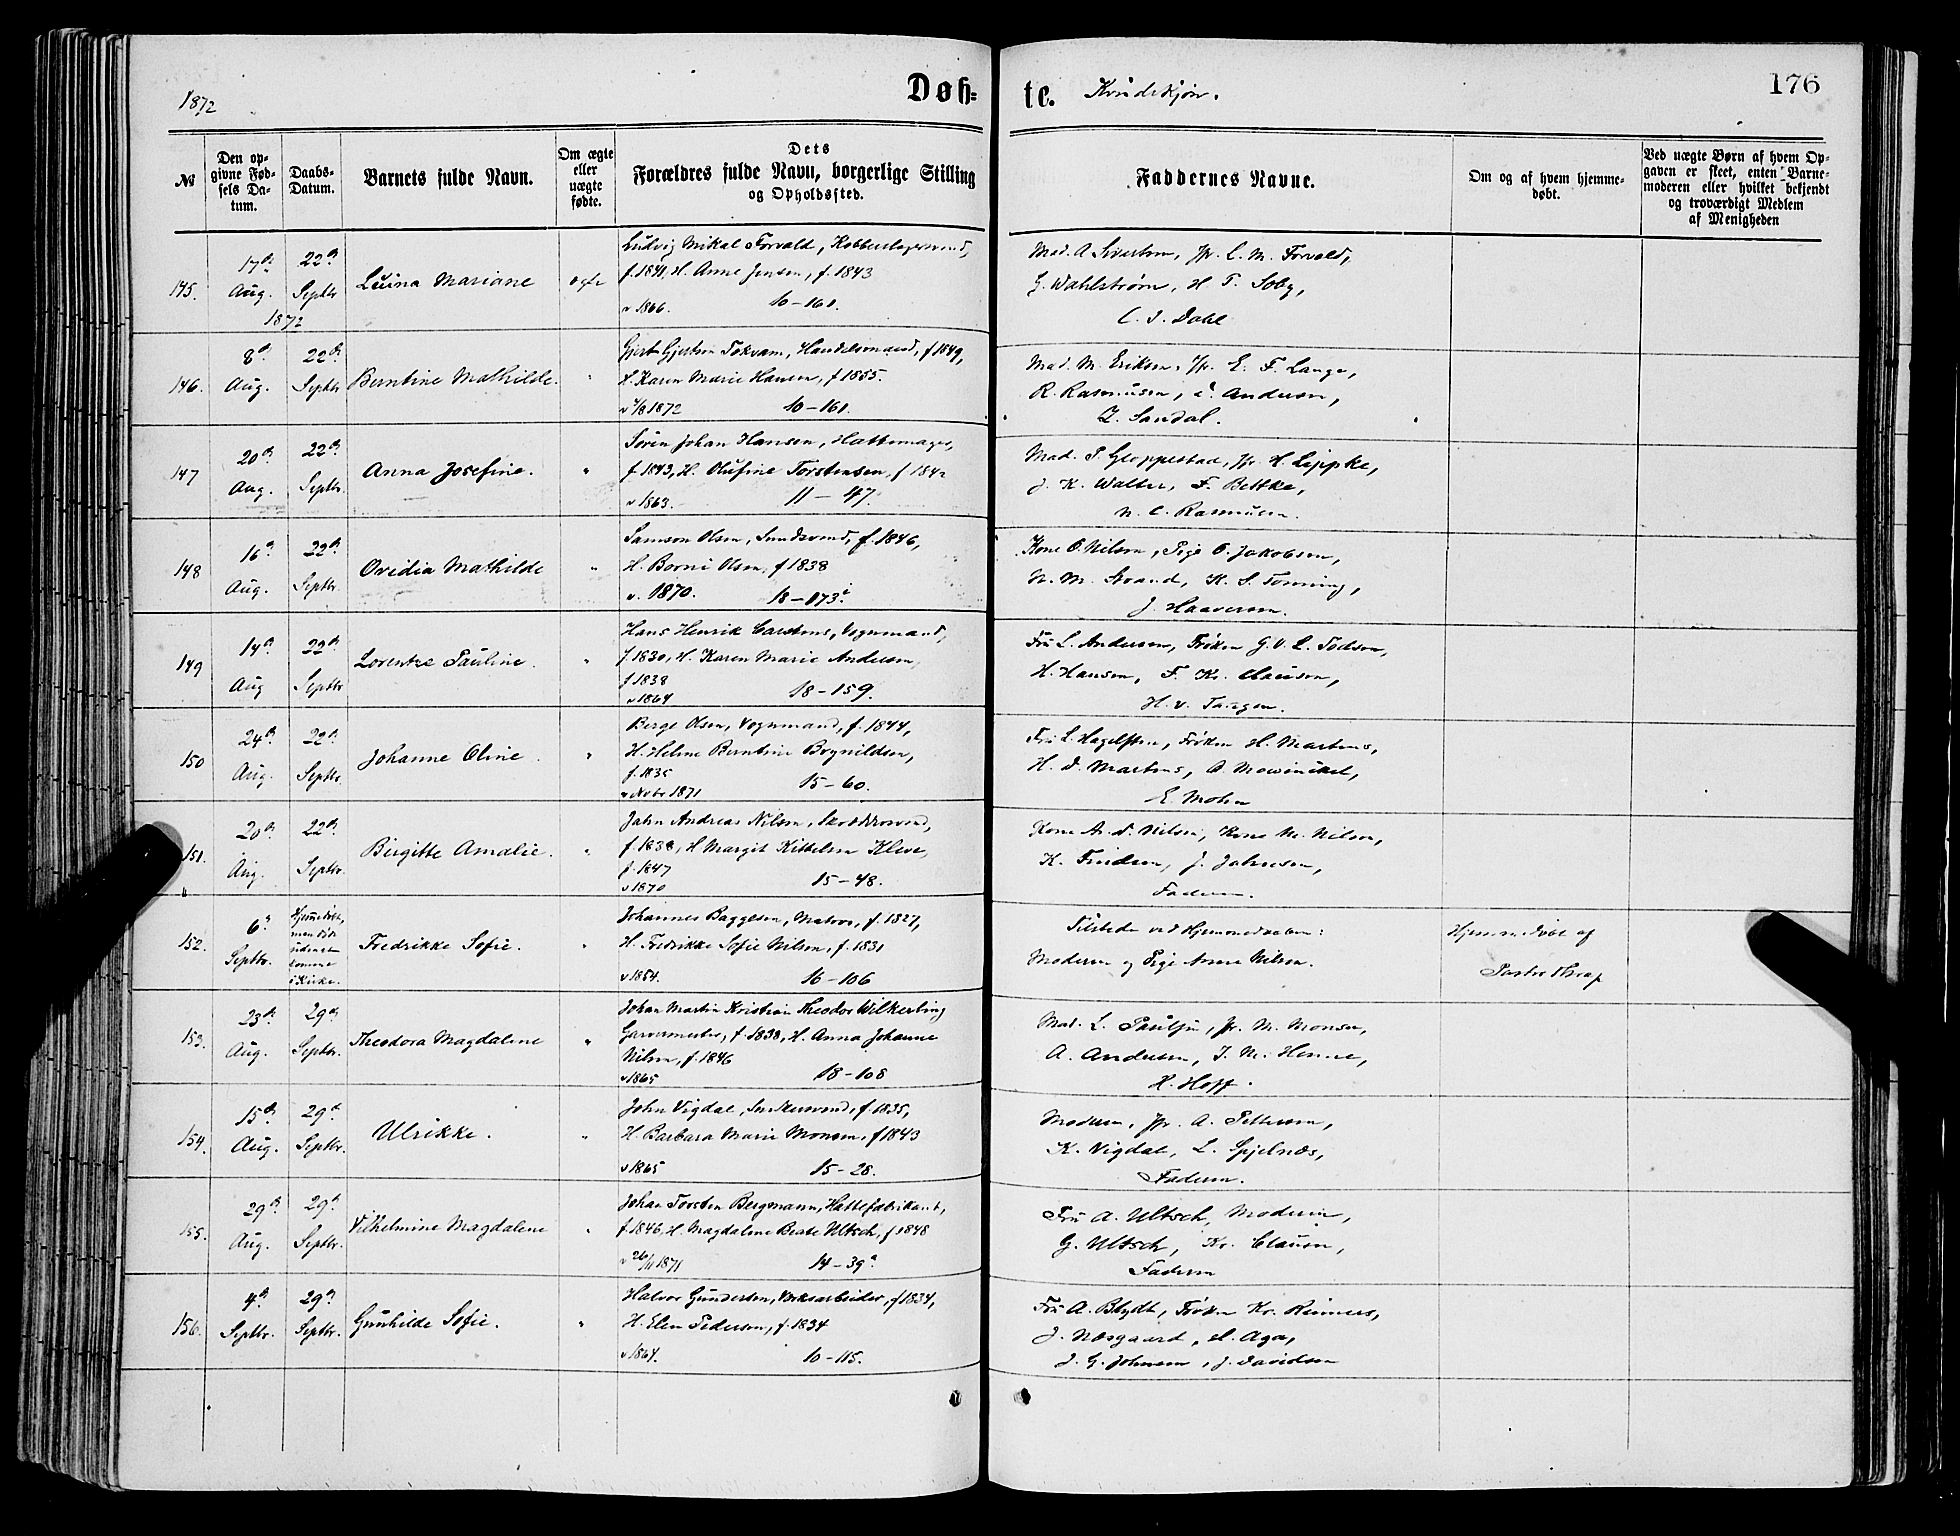 1872
Døb=
te. Kvindekjøn.
176
№
Den opgivne Fødsels Datum.
Daabs-Datum.
Barnets fulde Navn.
Om ægte eller uægte fødte.
Dets Forældres fulde Navn, borgerlige Stilling og Opholdssted.
Faddernes Navne.
Om og af hvem hjemmedøbt.
Ved uægte Børn af hvem Opgaven er skeet, enten Barnemoderen eller hvilket bekjendt og troværdigt Medlem af Menigheden
145. 17de Aug. 1872 22de Septbr Lluina Mariane ægte
Ludvig Mikal Forvald, Kobberslagersvend,
f. 1841, H. Anne Jensen, f. 1843
v 1866. 10-161.
Mad. A. Sivertsen, Jfr. C. M. Forvald,
G. Wahlstrøm, H. T. Soby,
C. I. Dahl
146. 8de Aug. 22de Septbr Berntine Mathilde. "
Gjert Gjertsen Tokvam, Handelsmand, f 1849,
H. Karen Marie Hansen, f 1855.
v 4/8 1872 10-161.
Mad. M. Eriksen, Jfr. E. F. Lange,
R. Rasmussen, Andersen,
Z. Sandal.
147 20de Aug. 22de Septbr. Anna Josefine. "
Søren Johan Hansen, Hattemager,
f. 1843, H. Olufine Torstensen, f 1842
v 1863. 11-47.
Mad. T. Gloppestad, Jfr. H. Lippke,
J. K. Walter, F. Bettke,
N. C. Rasmussen.
148 16de Aug. 22de Septbr. Ovidia Mathilde "
Samson Olsen, f. 1846,
H. Berni Olsen, f 1838
v. 1870. 18-173.
Kone O. Nilsen, Pige O. Jakobsen,
N. M. Strand, K. S. Tonning,
J. Haaversen.
149 14de Aug 22de Septbr Lorentze Pauline. "
Hans Henrik Carstens, Vognmand,
f. 1830, H. Karen Marie Andersen,
f 1838
v 1864 18-159.
Fru L. Andersen, Frøken G. V. L. Todsen,
H. Hansen, F. Kr. Clausen,
H. v. Tangen.
150 24de Aug. 22de Septbr. Johanne Oline. "
Berge Olsen, Vognmand, f. 1844,
H. Helene Berntine Brynildsen,
f. 1835
v Novbr 1871 15-60.
Fru L. Hagelsten, Frøken H. Martens,
H. D. Martens, A. Mowinckel,
E. Mohn
151. 20de Aug. 22de Septbr. Birgitte Amalie. "
Jahn Andreas Nilsen,
f. 1838, H Margit Kittelsen Kleve,
f. 1847
v 1870 15-48.
Kone A. D. Nilsen, Kone M. Nilsen,
K. Knudsen, J. Jahnsen,
Faderen.
152. 6te Septbr. Hjemmedøbt, men døde udenat komme i Kirke. Fredrikke Sofie. "
Johannes Baggesen, Matros, f. 1827,
H. Fredrikke Sofie Nilsen, f. 1831
v 1854. 16-106
Tilstede ved Hjemmedaaben:
Moderen og Pige Anne Nilsen.
Hjemmedøbt af
Pastor Thrap
153. 23de Aug. 29de Septbr. Theodora Magdalene "
Johan Martin Kristian Theodor Wilkerling
Garvermester, f. 1838, H. Anna Johanne
Nilsen, f. 1846
v 1865 18-108
Mad. L. Paulsen, Jfr. M. Monsen,
A. Andersen, J. M. Henne,
H. Hoff.
154. 15de Aug. 29de Septbr. Ulrikke. "
John Vigdal, Snedkersvend, f. 1835,
H. Barbara Marie Monsen, f 1843
v 1865 15-28.
Moderen, Jfr. A. Pettersen,
K. Vigdal, L. Gjelnæs,
Faderen.
155. 29de Aug. 29de Septbr. Vilhelmine Magdalene "
Johan Torsten Bergmann, Hattefabrikant,
f. 1846, H. Magdalene Beate Ultsch, f 1848
v 26/11 1871 14-39a
Fru A. Ultsch, Moderen,
G. Ultsch, Kr. Clausen,
Faderen
156. 4de Septbr. 29de Septbr. Gunhilde Sofie. "
Halvor Gundersen, Verksarbeider, f 1834,
H. Elen Pedersen, f. 1834
v 1864. 10-115.
Fru A. Blydt, Frøken Kr. Reimers,
J. Næsgaard, H. Aga,
J. G. Johnsen, J. Davidsen